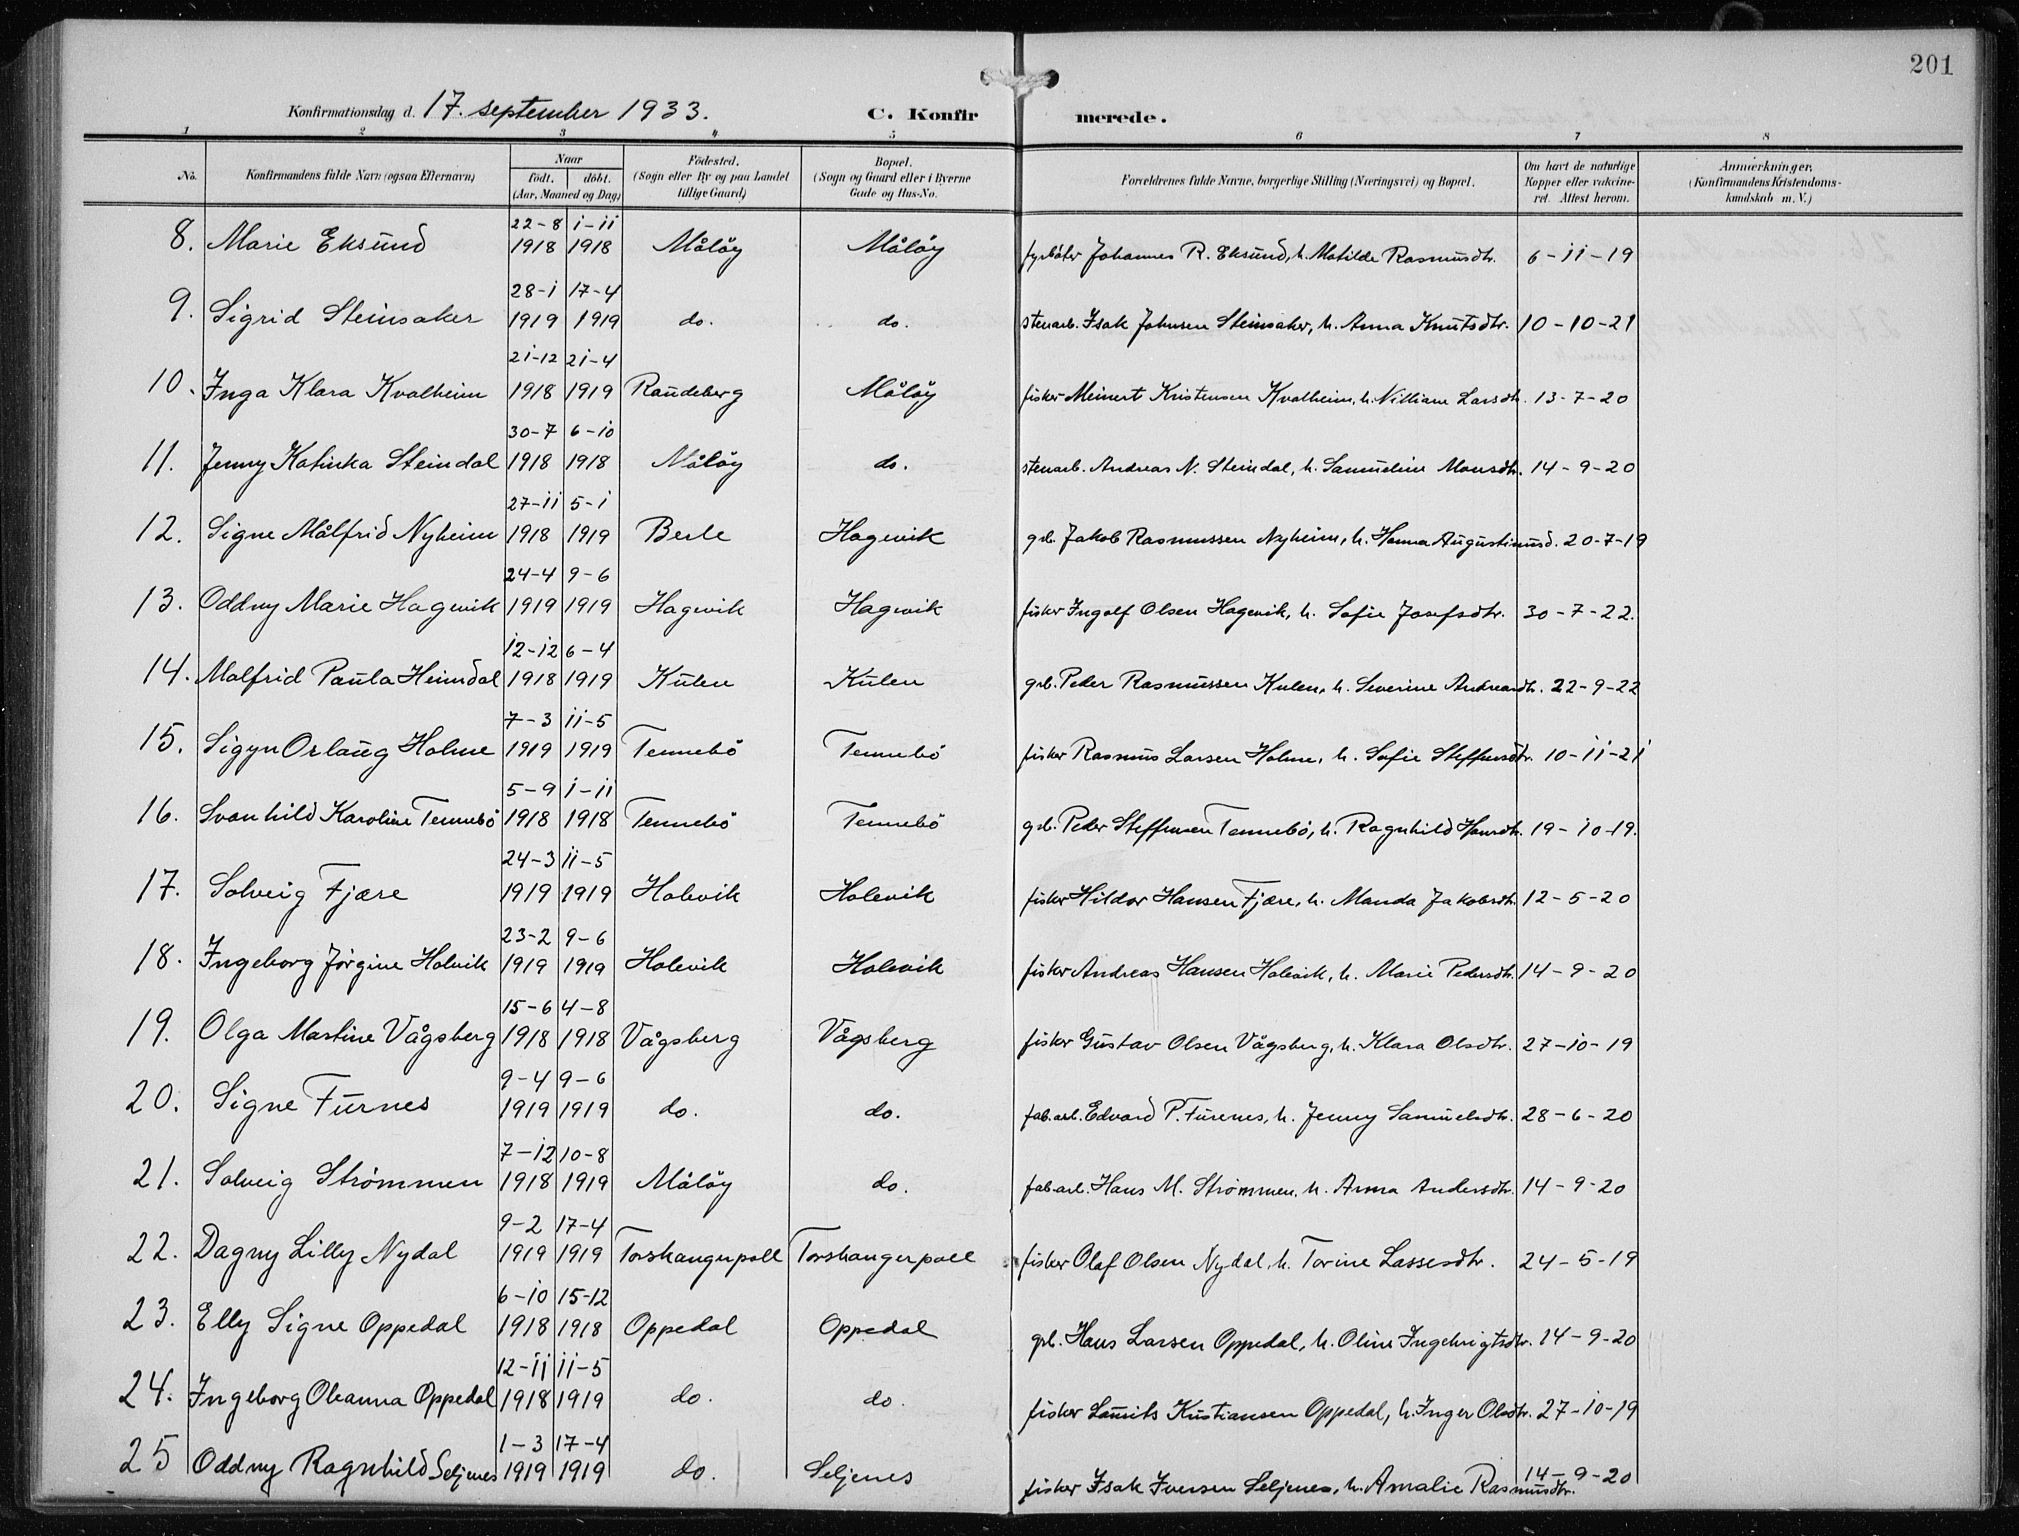 201
Konfirmationsdag d. 17. september 1933. C. Konfirmerede.
1 2 3 4 5 6 7 8
No. Konfirmandens fulde Navn (ogsaa Efternavn) Naar født. døbt. (Aar, Maaned og Dag) Födested. (Sogn eller By og paa Landet tillige Gaard) Bopæl. (Sogn og Gaard eller i Byerne Gade og Hus-No. Forældrenes fulde Navne, borgerlige Stilling (Næringsvei) og Bopæl. Om havt de naturlige Kopper eller vakcineret. Attest herom. Anmærkninger. (Konfirmandens Kristendomskundskab m. V.)
8. Marie Eksund 22-8 1918 1-11 1918 Måløy Måløy fyrbøter Johannes R. Eksund, h. Matilde Rasmusdtr. 6-11-19
9. Sigrid Steinsaker 28-1 1919 17-4 1919 do. do. stenarb. Isak Johnsen Steinsaker, h. Anna Knutsdtr. 10-10-21
10. Inga Klara Kvalheim 21-12 1918 21-4 1919 Raudeberg Måløy fisker Meinert Kristensen Kvalheim, h. Nilliane Larsdtr. 13-7-20
11. Jenny Katinka Steindal 30-7 1918 6-10 1918 Måløy do. stenarb. Andreas N. Steindal, h. Samueline Monsdtr. 14-9-20
12. Signe Målfrid Nyheim 27-11 1918 5-1 1919 Berle Hagevik grb. Jakob Rasmussen Nyheim, h. Hanna Augustinusd. 20-7-19
13. Oddny Marie Hagevik 24-4 1919 9-6 1919 Hagevik Hagevik fisker Ingolf Olsen Hagevik, h. Sofie Josefsdtr. 30-7-22.
14. Malfrid Paula Heimdal 12-12 1918 6-4 1919 Kulen Kulen grb. Peder Rasmussen Kulen, h. Severine Andreasdtr. 22-9-22
15. Sigyn Orlaug Holme 7-3 1919 11-5 1919 Tennebö Tennebö fisker Rasmus Larsen Holme, h. Sofie Steffensdtr. 10-11-21
16. Svanhild Karoline Tennebö 5-9 1918 1-11 1918 Tennebö Tennebö grb. Peder Steffensen Tennebö, h. Ragnhild Hansdtr. 19-10-19.
17. Solveig Fjære 24-3 1919 11-5 1919 Holevik Holevik fisker Hildor Hansen Fjære, h. Manda Jakobsdtr. 12-5-20
18. Ingeborg Jørgine Holvik 23-2 1919 9-6 1919 Holevik Holevik fisker Andreas Hansen Holevik, h. Marie Pedersdtr. 14-9-20
19. Olga Martine Vågsberg 15-6 1918 4-8 1918 Vågsberg Vågsberg fisker Gustav Olsen Vågsberg, h. Klara Olsdtr. 27-10-19
20. Signe Furnes 9-4 1919 9-6 1919 do. do. fab.arb. Edvard P. Furenes, h. Jenny Samuelsdtr. 28-6-20
21. Solveig Strømmen 7-12 1918 10-8 1919 Måløy do. fab.arb. Hans M. Strømmen, h. Anna Andersdtr. 14-9-20
22. Dagny Lilly Nydal 9-2 1919 17-4 1919 Torskangerpoll Torskangerpoll fisker Olaf Olsen Nydal, h. Torine Lassesdtr. 24-5-19
23. Elly Signe Oppedal 6-10 1918 15-12 1918 Oppedal Oppedal grb. Hans Larsen Oppedal, h. Oline Ingebrigtsdtr. 14-9-20
24. Ingeborg Oleanna Oppedal 12-11 1918 11-5 1919 do. do. fisker Laurits Kristiansen Oppedal, h. Inger Olsdtr. 27-10-19
25 Oddny Ragnhild Seljenes 1-3 1919 17-4 1919 do. Seljenes fisker Isak Iversen Seljenes, h. Amalie Rasmusdtr. 14-9-20